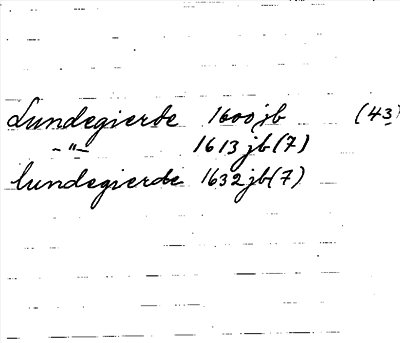 Lundegierde 1600 jb (43)
-"- 1613 jb (7)
lundegierde 1632 jb (7)